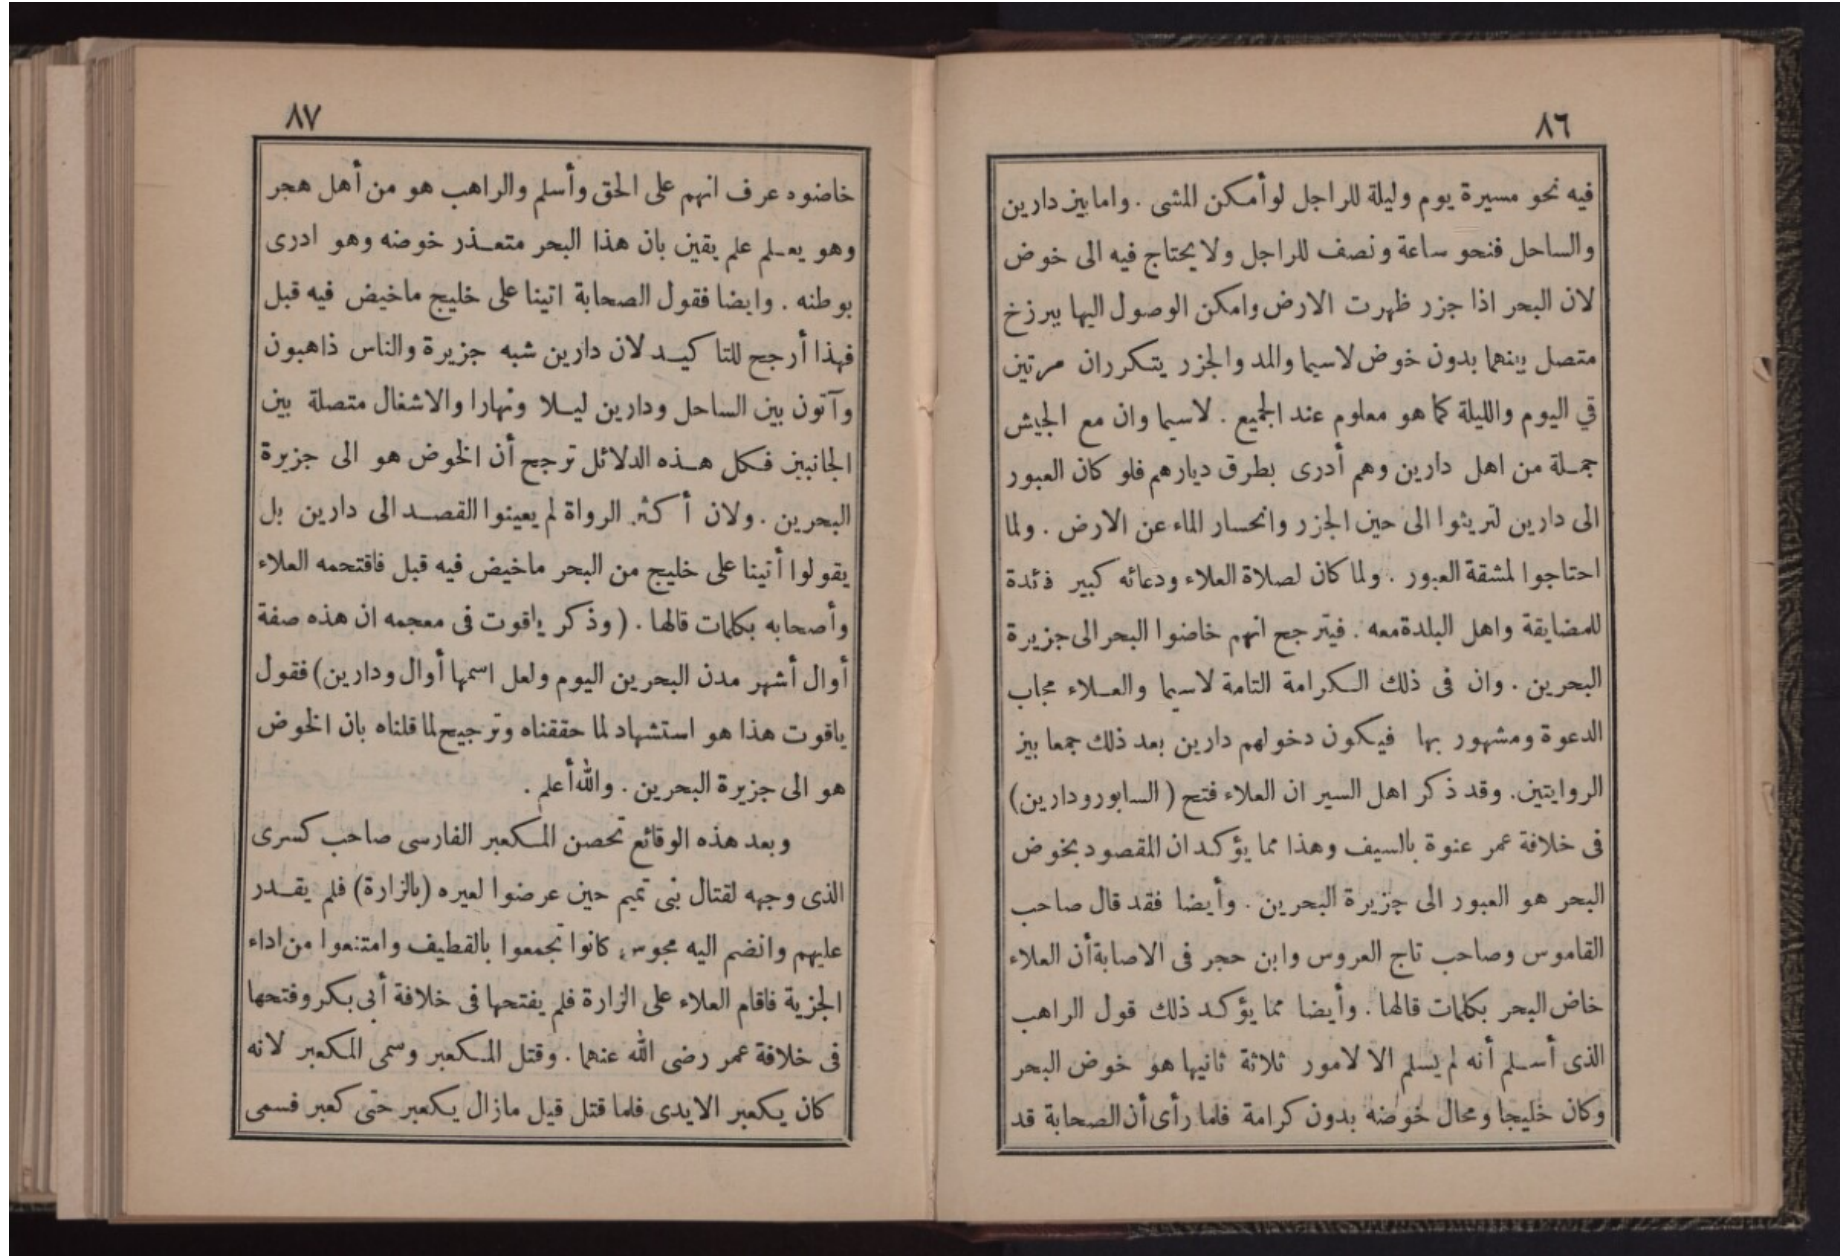 ٨٦
فيه نحو مسيرة يوم وليلة للراجل لوأمكن المشى . وامابين دارين
والساحل فنحو ساعة ونصف للراجل ولا يحتاج فيه الى خوض
لان البحر اذا جزر ظهرت الارض وامكن الوصول اليها ببرزخ
متصل بينهما بدون خوض لاسيما والمد والجزر يتكرران مرتين
في اليوم والليلة كما هو معلوم عند الجميع . لاسيما وان مع الجيش
جملة من اهل دارين وهم أدرى بطرق ديارهم فلو كان العبور
الى دارين لتريثوا الى حين الجزر وانحسار الماء عن الارض . ولما
احتاجوا لمشقة العبور . ولما كان لصلاة العلاء ودعائه كبير فئدة
للمضايقة واهل البلدة معه . فيترجح انهم خاضوا البحر الى جزيرة
البحرين . وان فى ذلك الكرامة التامة لاسيما والعلاء مجاب
الدعوة ومشهور بها فيكون دخولهم دارين بعد ذلك جمعا بين
الروايتين. وقد ذكر اهل السير ان العلاء فتح ( السابور ودارين)
فى خلافة عمر عنوة بالسيف وهذا مما يؤكد ان المقصود بخوض
البحر هو العبور الى جزيرة البحرين . وأيضا فقد قال صاحب
القاموس وصاحب تاج العروس وابن حجر فى الاصابة أن العلاء
خاض البحر بكلمات قالها . وأيضا مما يؤكد ذلك قول الراهب
الذى أسلم أنه لم يسلم الا لامور ثلاثة ثانيها هو خوض البحر
وكان خليجا ومحال خوضه بدون كرامة فلما رأى أن الصحابة قد
٨٧
خاضوه عرف انهم على الحق وأسلم والراهب هو من أهل هجر
وهو يعلم علم يقين بان هذا البحر متعذر خوضه وهو ادرى
بوطنه . وايضا فقول الصحابة اتينا على خليج ماخيض فيه قبل
فهذا أرجح للتا كيد لان دارين شبه جزيرة والناس ذاهبون
وآتون بين الساحل ودارين ليلا ونهارا والاشغال متصلة بين
الجانبين فكل هذه الدلائل ترجح أن الخوض هو الى جزيرة
البحرين . ولان أ كثر الرواة لم يعينوا القصد الى دارين بل
يقولوا أتينا على خليج من البحر ماخيض فيه قبل فاقتحمه العلاء
وأصحابه بكلمات قالها . ( وذكر ياقوت فى معجمه ان هذه صفة
أوال أشهر مدن البحرين اليوم ولعل اسمها أوال ودارين) فقول
ياقوت هذا هو استشهاد لما حققناه وترجيح لما قلناه بان الخوض
هو الى جزيرة البحرين . والله أعلم .
وبعد هذه الوقائع تحصن المكعبر الفارسى صاحب كسرى
الذى وجهه لقتال بنى تميم حين عرضوا لعيره (بالزارة) فلم يقدر
عليهم وانضم اليه مجوس كانوا تجمعوا بالقطيف وامتنعوا من اداء
الجزية فاقام العلاء على الزارة فلم يفتحها فى خلافة أبى بكر وفتحها
فى خلافة عمر رضى الله عنهما . وقتل المكعبر وسمى المكعبر لانه
كان يكعبر الايدى فلما قتل قيل مازال يكعبر حتى كعبر فسمى